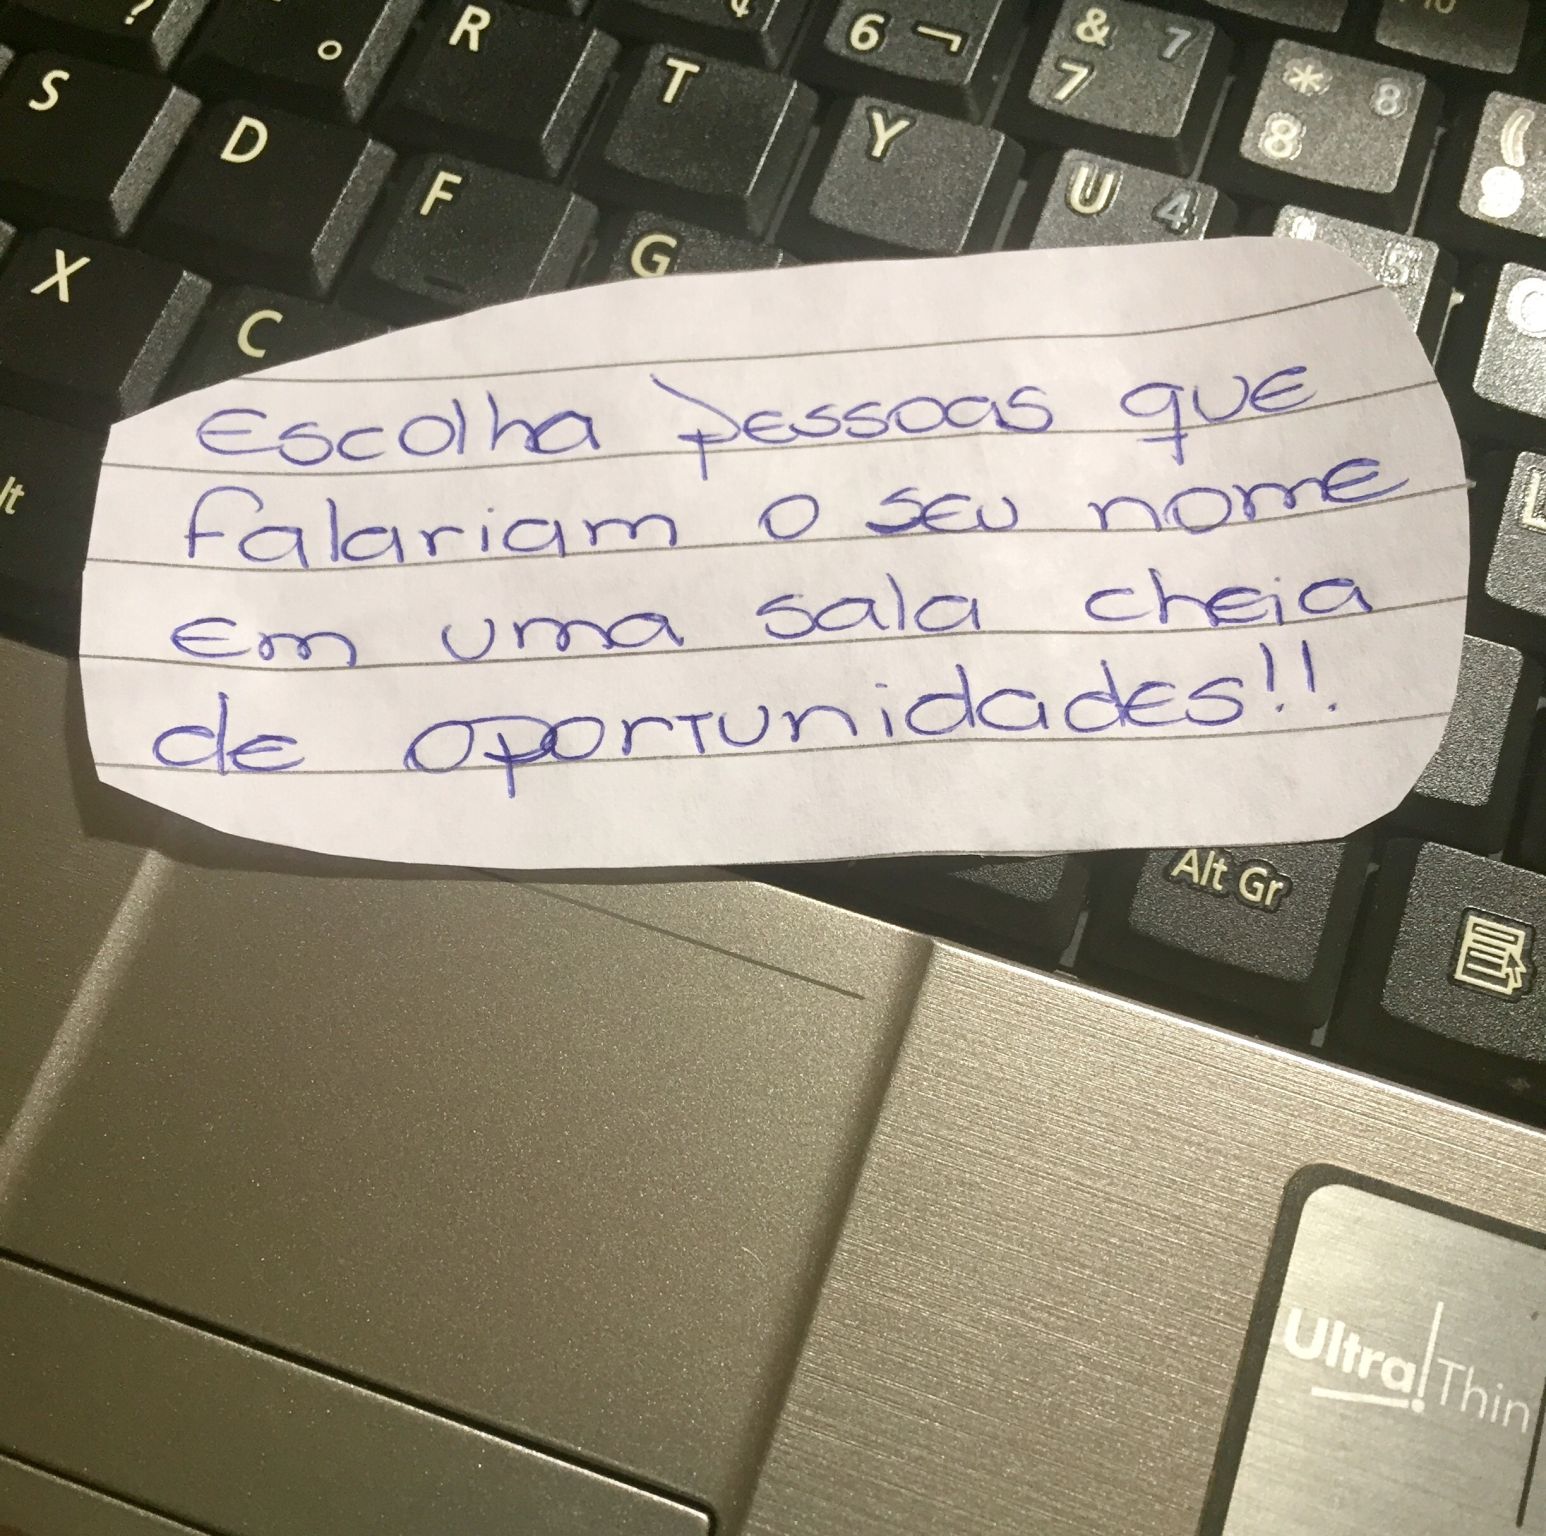 ?
°
R
6 ¬
& 7
7
* 8
8
(
9
S
D
F
T
Y
U 4
X
C
G
5
lt
L
Escolha pessoas que
falariam o seu nome
em uma sala cheia
de oportunidades!!
Alt Gr
Ultra! Thin